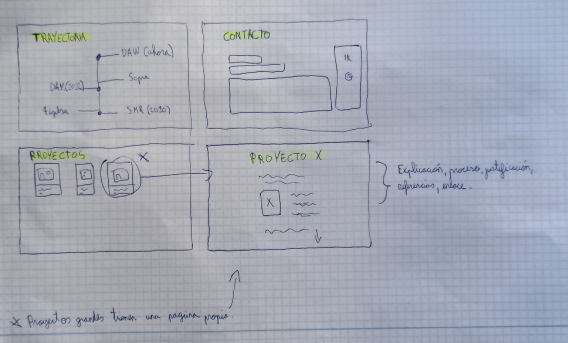 TRAYECTORIA
DAW (ahora)
Sopra
DAM (2022)
SMR (2020)
CONTACTO
IN
PROYECTOS
X
PROYECTO X
X
Explicación, proceso, justificación,
enlace.
* Proyectos grandes tienen una pagina propia